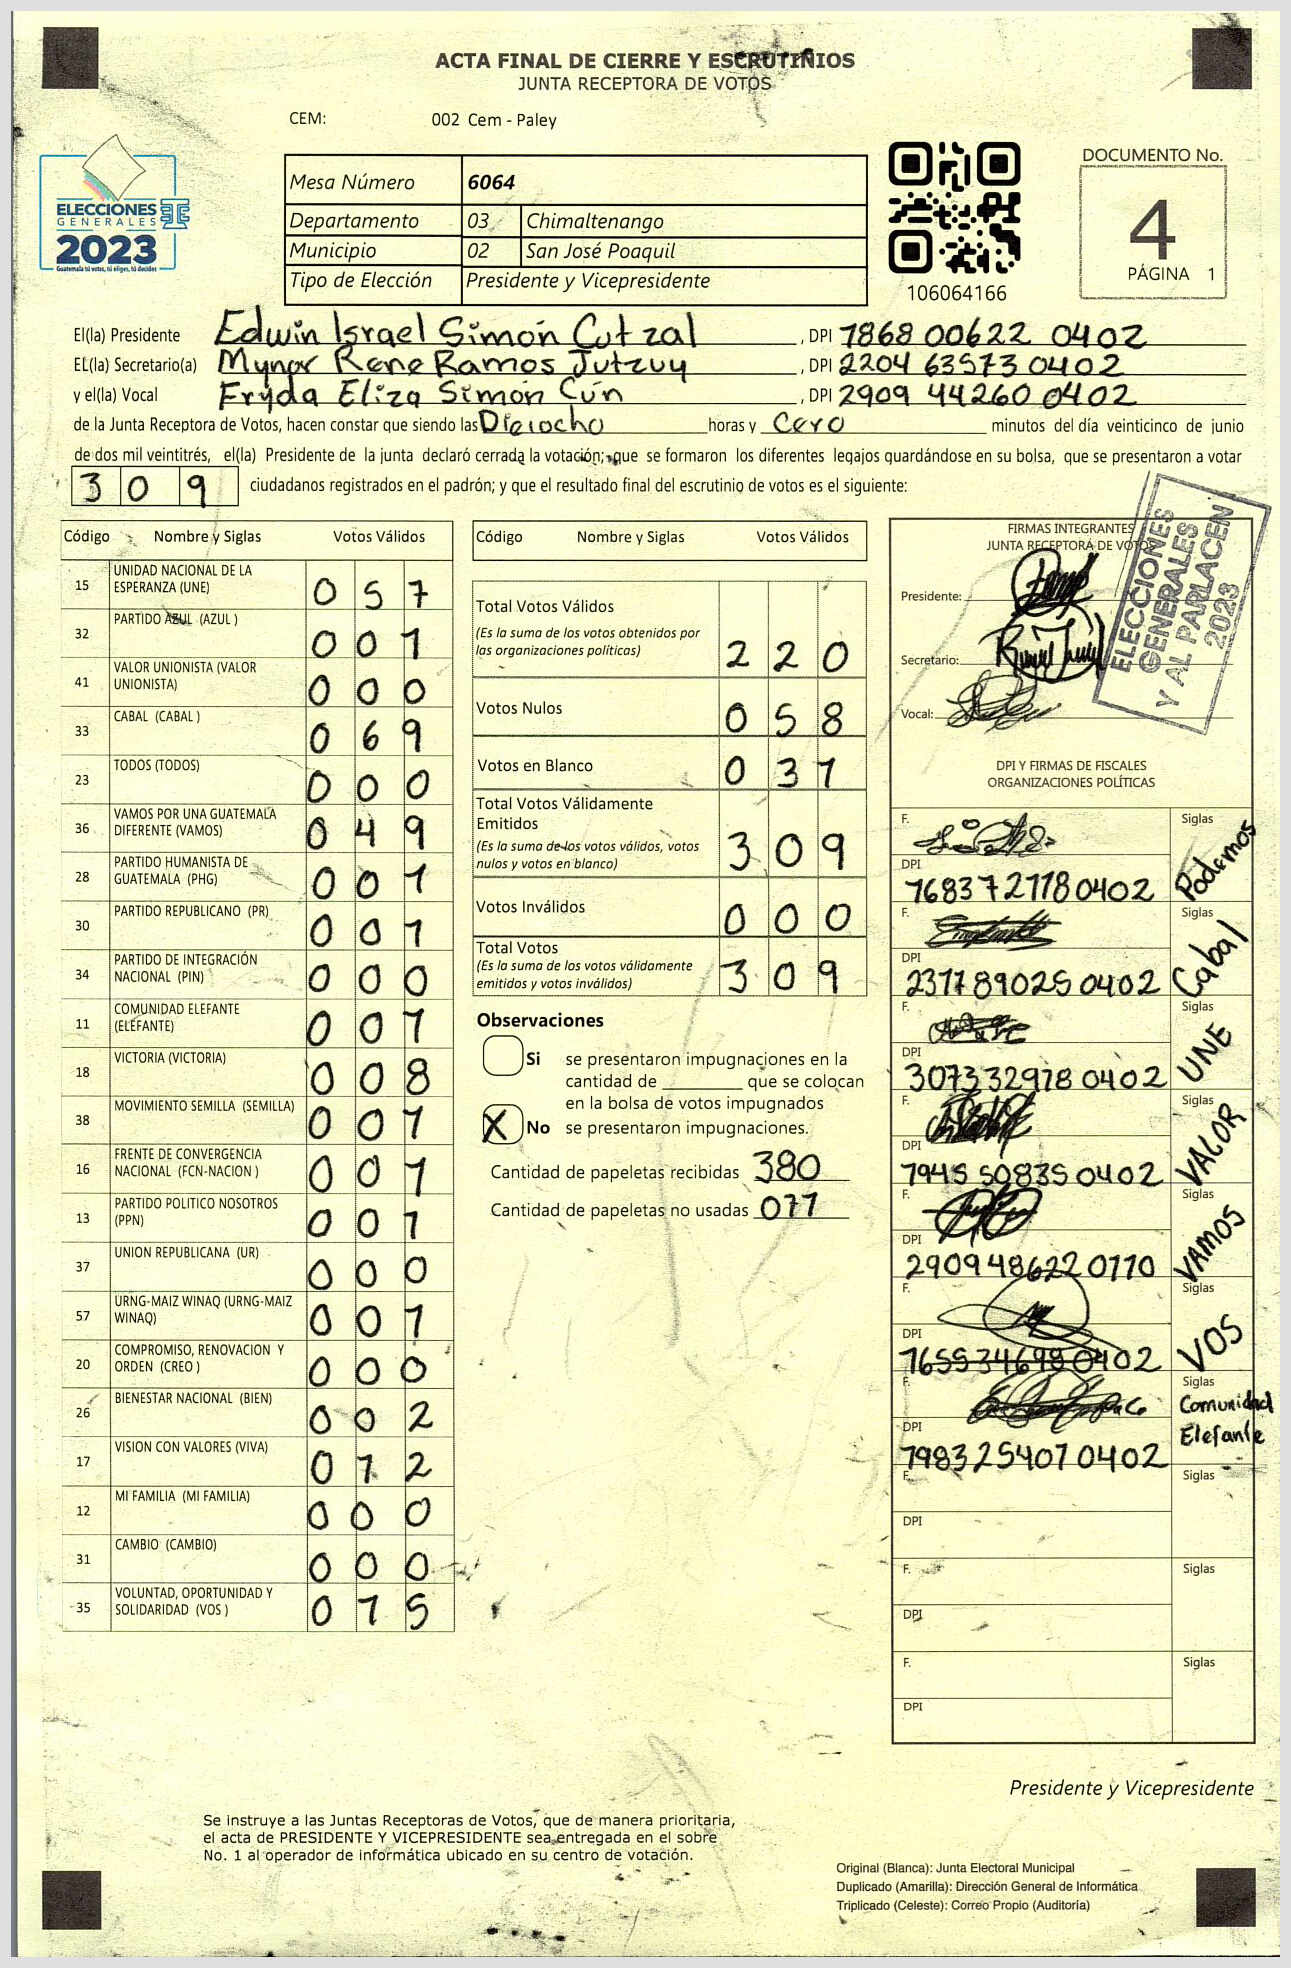 ACTA FINAL DE CIERRE Y ESCRUTINIOS
JUNTA RECEPTORA DE VOTOS
CEM: 002 Cem - Paley
ELECCIONES
GENERALES
2023
Guatemala tú votas, tú eliges, tú decides
Mesa Número 6064
Departamento 03 Chimaltenango
Municipio 02 San José Poaquil
Tipo de Elección Presidente y Vicepresidente
106064166
DOCUMENTO No.
4
PÁGINA 1
El(la) Presidente Edwin Israel Simón Cutzal , DPI 1868 00622 0402
EL(la) Secretario(a) Mynor Rene Ramos Jutzuy , DPI 2204 63573 0402
y el(la) Vocal Fryda Eliza Simón Cún , DPI 2909 44260 0402
de la Junta Receptora de Votos, hacen constar que siendo las Dieiocho horas y Cero minutos del día veinticinco de junio
de dos mil veintitrés, el(la) Presidente de la junta declaró cerrada la votación; que se formaron los diferentes legajos guardándose en su bolsa, que se presentaron a votar
309 ciudadanos registrados en el padrón; y que el resultado final del escrutinio de votos es el siguiente:
Código Nombre y Siglas Votos Válidos
15 UNIDAD NACIONAL DE LA ESPERANZA (UNE) 057
32 PARTIDO AZUL (AZUL ) 001
41 VALOR UNIONISTA (VALOR UNIONISTA) 000
33 CABAL (CABAL ) 069
23 TODOS (TODOS) 000
36 VAMOS POR UNA GUATEMALA DIFERENTE (VAMOS) 049
28 PARTIDO HUMANISTA DE GUATEMALA (PHG) 001
30 PARTIDO REPUBLICANO (PR) 001
34 PARTIDO DE INTEGRACIÓN NACIONAL (PIN) 000
11 COMUNIDAD ELEFANTE (ELEFANTE) 001
18 VICTORIA (VICTORIA) 008
38 MOVIMIENTO SEMILLA (SEMILLA) 001
16 FRENTE DE CONVERGENCIA NACIONAL (FCN-NACION ) 001
13 PARTIDO POLITICO NOSOTROS (PPN) 001
37 UNION REPUBLICANA (UR) 000
57 URNG-MAIZ WINAQ (URNG-MAIZ WINAQ) 001
20 COMPROMISO, RENOVACION Y ORDEN (CREO ) 000
26 BIENESTAR NACIONAL (BIEN) 002
17 VISION CON VALORES (VIVA) 012
12 MI FAMILIA (MI FAMILIA) 000
31 CAMBIO (CAMBIO) 000
35 VOLUNTAD, OPORTUNIDAD Y SOLIDARIDAD (VOS ) 015
Código Nombre y Siglas Votos Válidos
Total Votos Válidos
(Es la suma de los votos obtenidos por
las organizaciones políticas) 220
Votos Nulos 058
Votos en Blanco 031
Total Votos Válidamente
Emitidos
(Es la suma de los votos válidos, votos
nulos y votos en blanco) 309
Votos Inválidos 000
Total Votos
(Es la suma de los votos válidamente
emitidos y votos inválidos) 309
Observaciones
Si se presentaron impugnaciones en la
cantidad de ________ que se colocan
en la bolsa de votos impugnados
X No se presentaron impugnaciones.
Cantidad de papeletas recibidas 380
Cantidad de papeletas no usadas 071
FIRMAS INTEGRANTES
JUNTA RECEPTORA DE VOTOS
Presidente:
Secretario:
Vocal:
ELECCIONES
GENERALES
Y AL PARLACEN
2023
DPI Y FIRMAS DE FISCALES
ORGANIZACIONES POLÍTICAS
F. Siglas Podemos
DPI 1683 72118 0402
F. Siglas Cabal
DPI 2371 89025 0402
F. Siglas UNE
DPI 3071 32918 0402
F. Siglas VALOR
DPI 1945 50835 0402
F. Siglas VAMOS
DPI 2909 48622 0110
F. Siglas VOS
DPI 1655 34698 0402
F. Siglas Comunidad Elefante
DPI 1983 25407 0402
F. Siglas
DPI
F. Siglas
DPI
F. Siglas
DPI
Presidente y Vicepresidente
Se instruye a las Juntas Receptoras de Votos, que de manera prioritaria,
el acta de PRESIDENTE Y VICEPRESIDENTE sea entregada en el sobre
No. 1 al operador de informática ubicado en su centro de votación.
Original (Blanca): Junta Electoral Municipal
Duplicado (Amarilla): Dirección General de Informática
Triplicado (Celeste): Correo Propio (Auditoría)